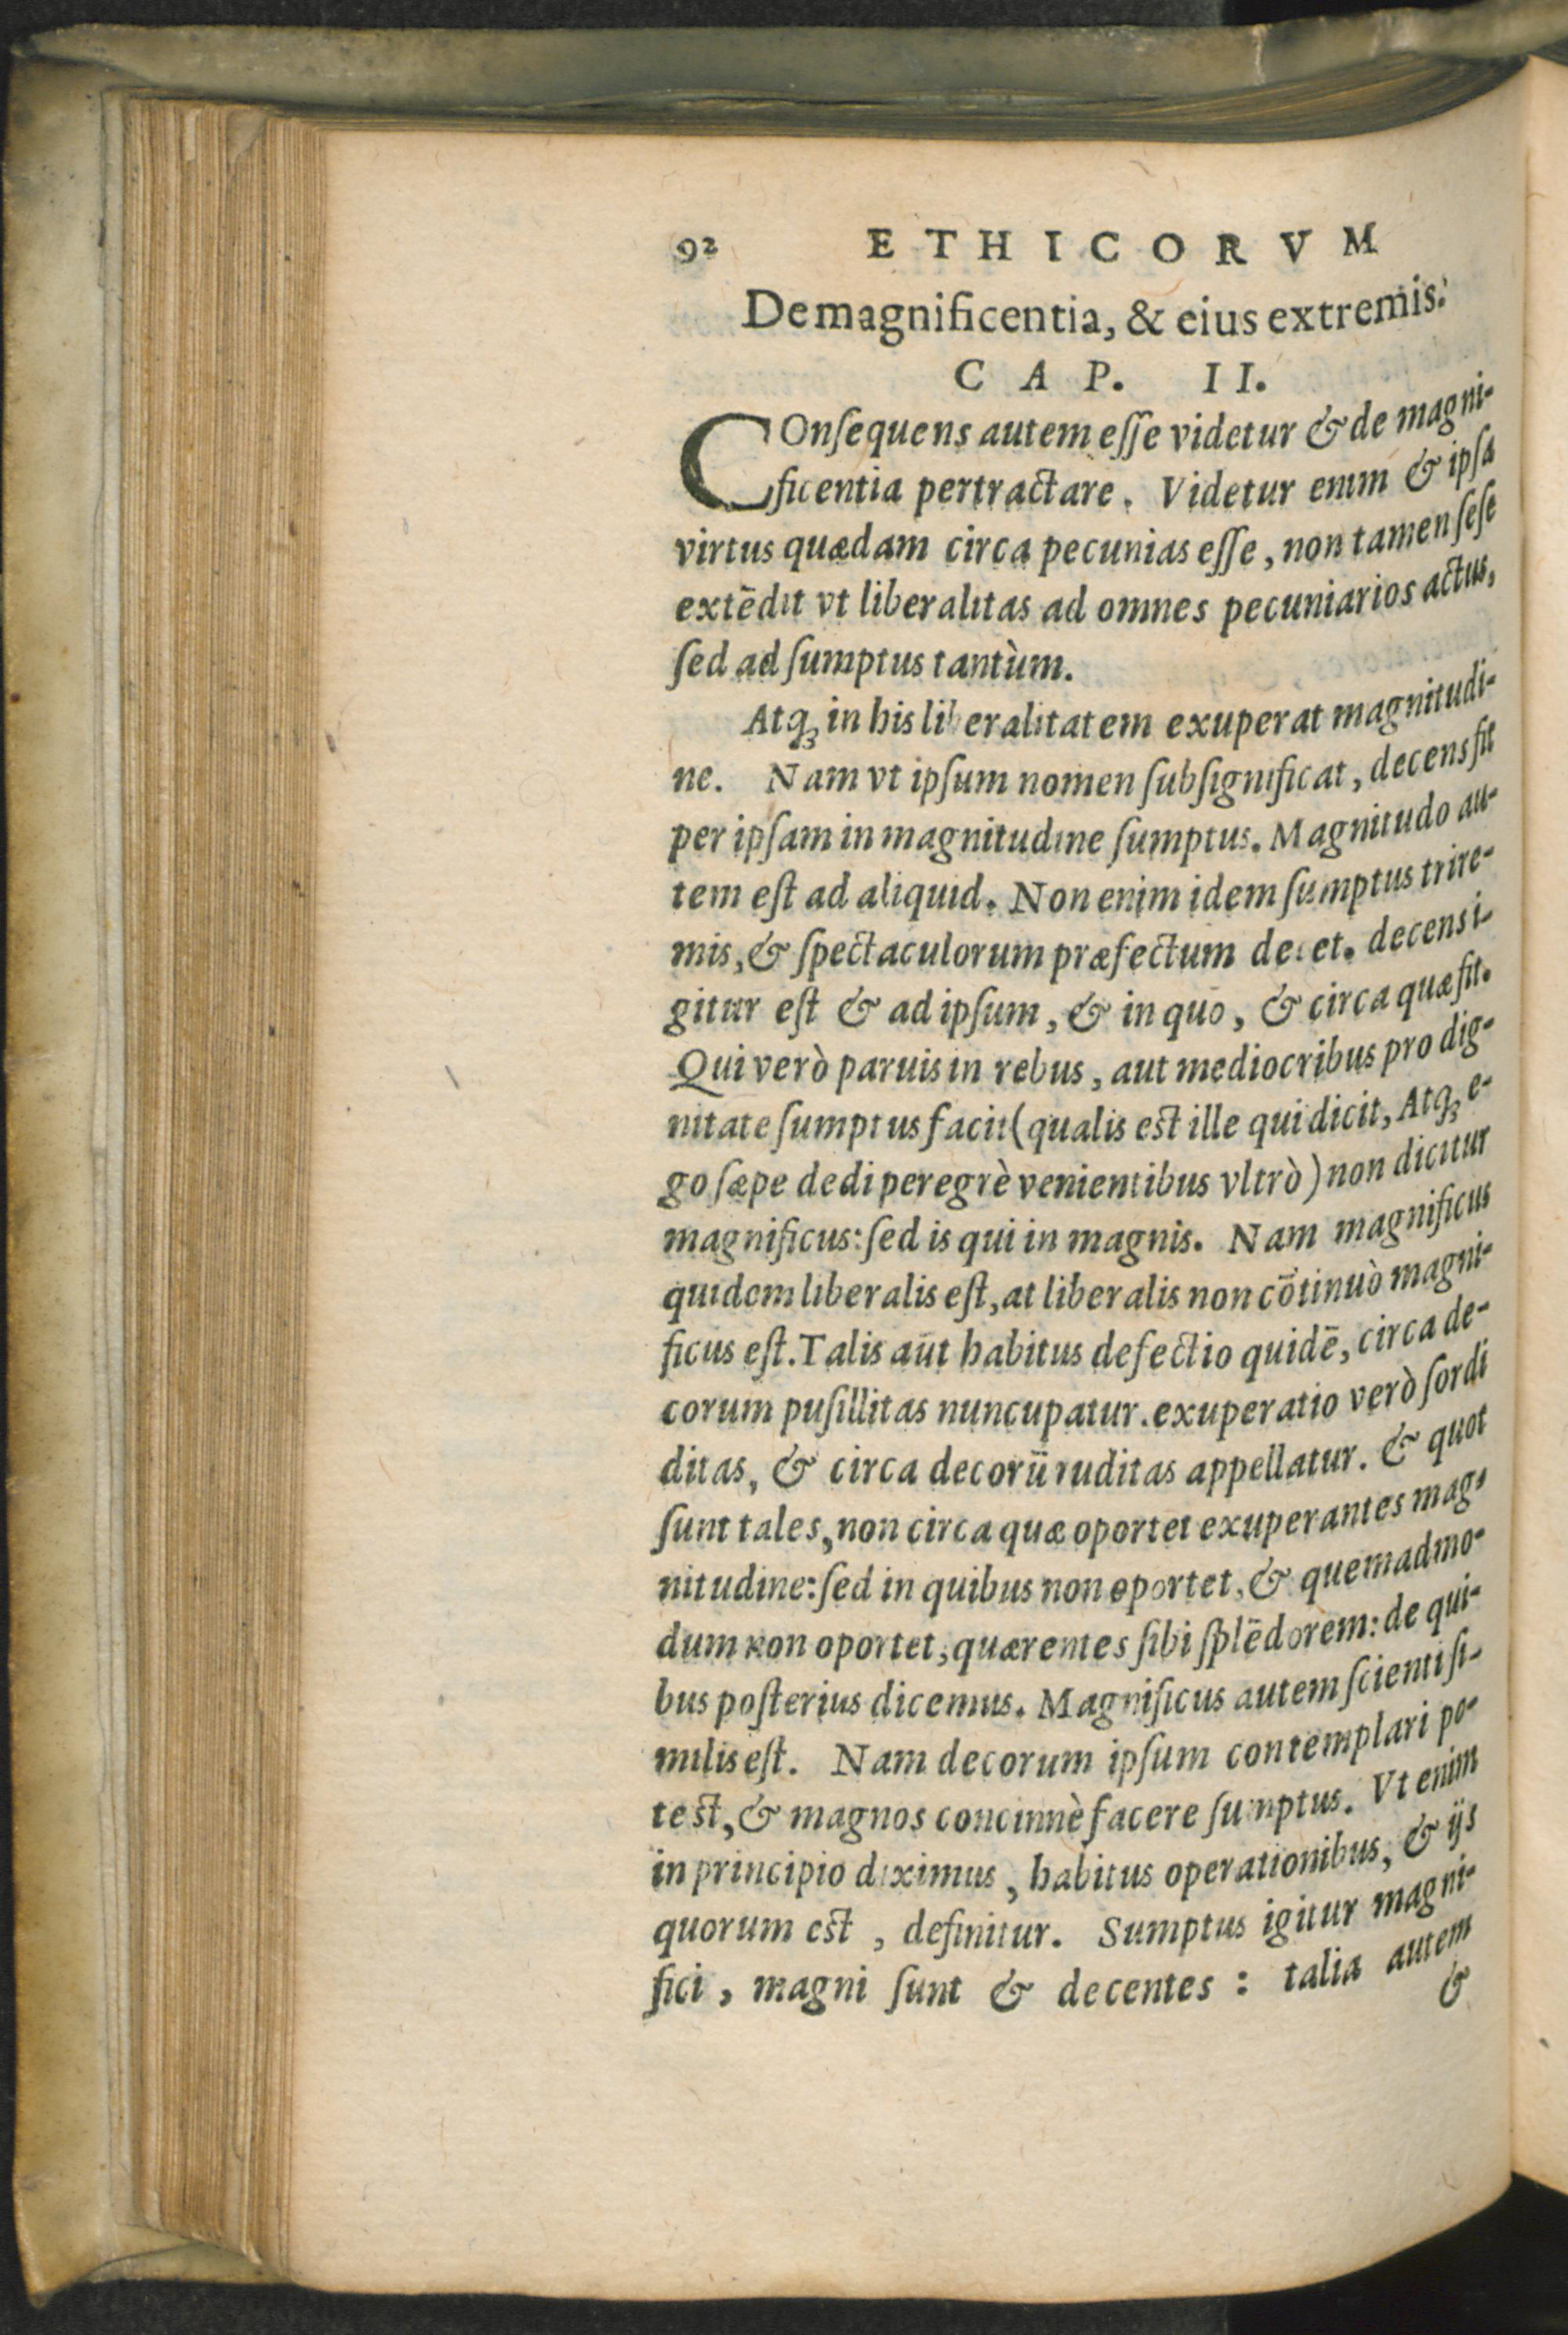 92 ETHICORVM
De magnificentia, & eius extremis.
CAP. II.
COnſequens autem eſſe videtur & de magni-
ficentia pertractare. Videtur enim & ipſa
virtus quædam circa pecunias eſſe, non tamen ſeſe
extēdit vt liberalitas ad omnes pecuniarios actus,
ſed ad ſumptus tantùm.
Atqꝫ in his liberalitatem exuperat magnitudi-
ne. Nam vt ipſum nomen ſubſignificat, decens ſit
per ipſam in magnitudine ſumptus. Magnitudo au-
tem eſt ad aliquid. Non enim idem ſumptus trire-
mis, & ſpectaculorum præfectum decet. decens i-
gitur eſt & ad ipſum, & in quo, & circa quæ ſit.
Qui verò paruis in rebus, aut mediocribus pro dig-
nitate ſumptus facit (qualis eſt ille qui dicit, Atqꝫ e-
go ſæpe dedi peregrè venientibus vltrò) non dicitur
magnificus: ſed is qui in magnis. Nam magnificus
quidem liberalis eſt, at liberalis non cōtinuò magni-
ficus eſt. Talis aūt habitus defectio quidē, circa de-
corum puſillitas nuncupatur. exuperatio verò ſordi
ditas, & circa decorū ruditas appellatur. & quot
ſunt tales, non circa quæ oportet exuperantes mag-
nitudine: ſed in quibus non oportet, & quemadmo-
dum non oportet, quærentes ſibi ſplēdorem: de qui-
bus poſterius dicemus. Magnificus autem ſcienti ſi-
milis eſt. Nam decorum ipſum contemplari po-
teſt, & magnos concinnè facere ſumptus. Vt enim
in principio diximus, habitus operationibus, & ijs
quorum eſt, definitur. Sumptus igitur magni-
fici, magni ſunt & decentes : talia autem
&